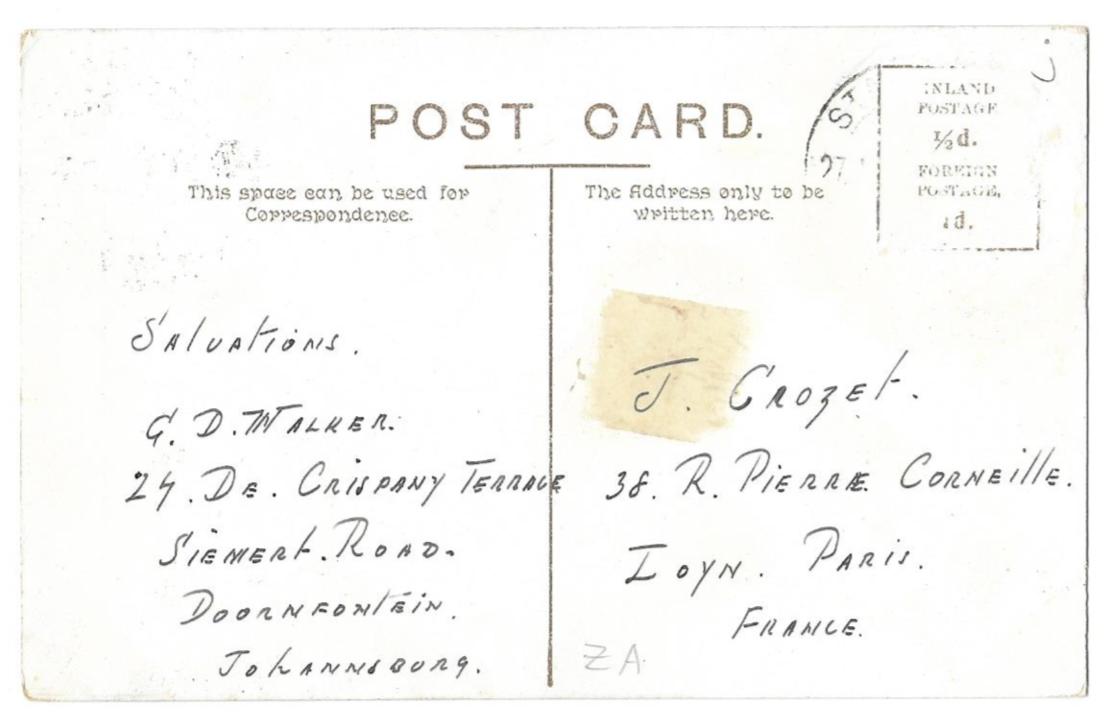 POST CARD.
INLAND
POSTAGE
½d.
FOREIGN
POSTAGE,
1d.
ST
27
This space can be used for
Correspondence.
Salvations.
G. D. Walker.
24. De. Crispany Terrace
Siemert. Road.
Doornfontein.
Johannsburg.
The Address only to be
written here.
J. Crozet.
38. R. Pierre Corneille.
Ioyn. Paris.
France.
ZA